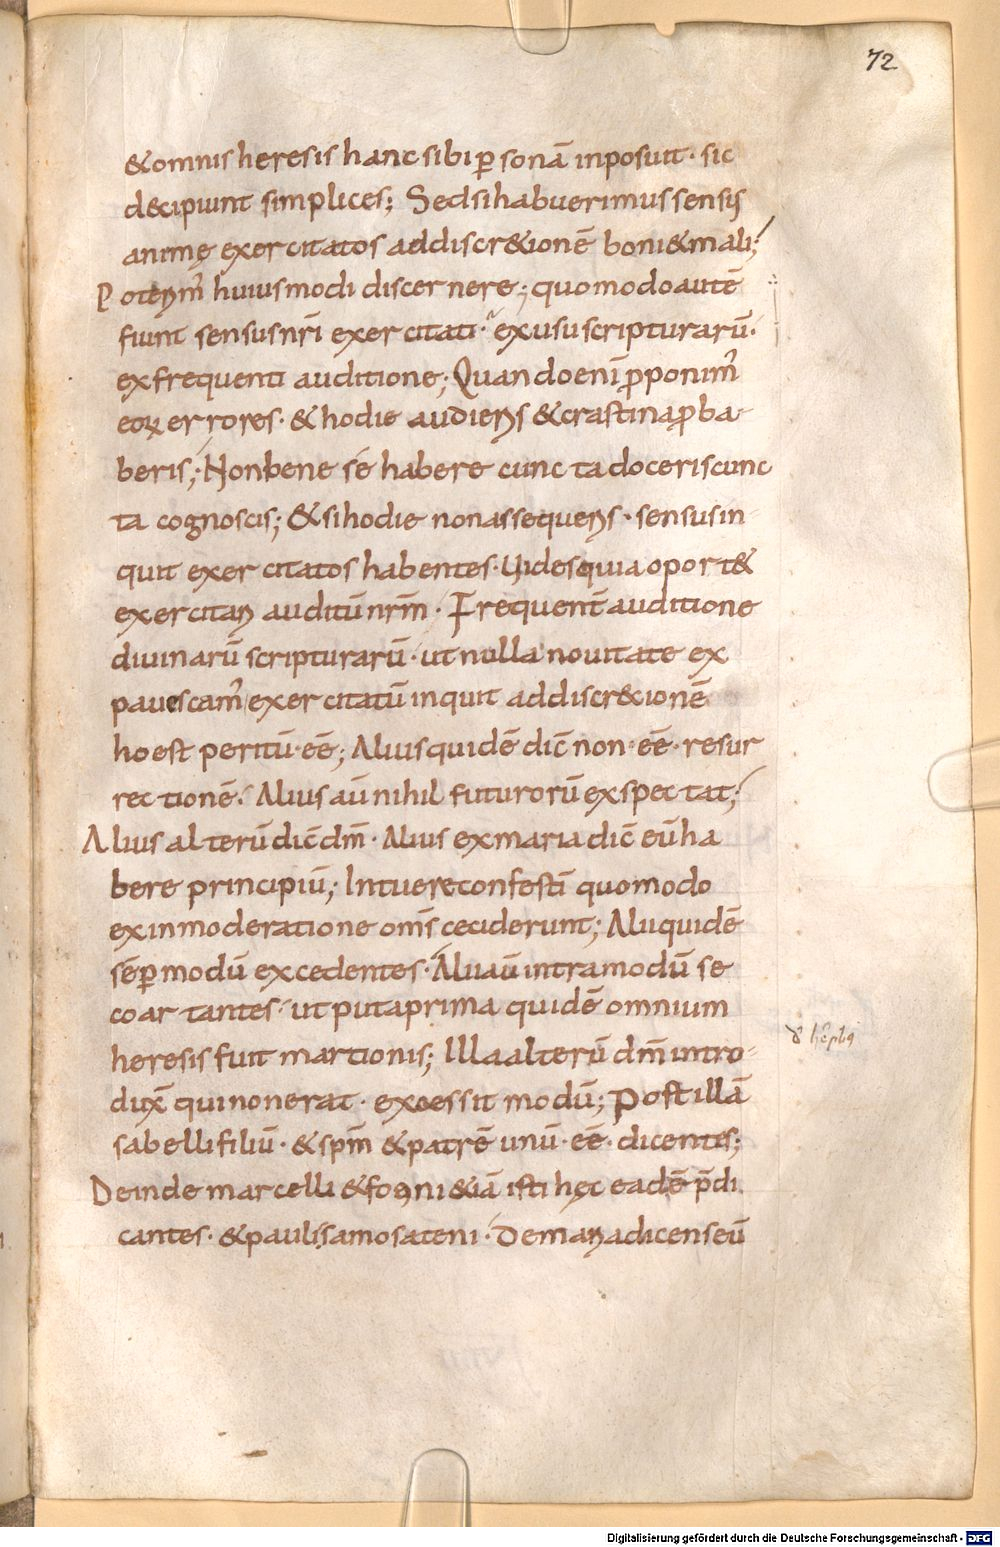 72
&omnis heresis hanc sibi p̲sonā inposuit · sic
decipiunt simplices; Sedsihabuerimussensus
animę exercitatos addiscr&ionē boni&mali;
Poterimꝰ huiusmodi discernere; quomodoautē
fiunt sensusnr̄i exercitati · exususcripturarū ·
exfrequenti auditione; Quandoenī p̲ponimꝰ
eoꝝ errores · &hodie audieris &crastinap̲ba
beris; Nonbene sē habere cuncta doceriscunc
ta cognoscis; &sihodie nonassequeris · sensusin
quit exercitatos habentes · Uidesquiaoport&
exercitari auditūnrm̄ · Frequent̄auditione
diuinarū scripturarū · ut nulla nouitate ex
pauescamꝰ exercitatū inquit addiscr&ionē
hoest peritū · eē; Aliusquidē dic̄ non · eē · resur
rectionē · Alius aū nihil futurorū exspectat;
Alius alterū dic̄ dm̄ · Alius exmaria dic̄ eū ha
bere principiū; Intuereconfestī quomodo
exinmoderatione oms̄ ceciderunt; Aliiquidē
sēp̲ modū excedentes · Aliiaū intramodū se
coartantes · ut putaprima quidē omnium
heresis fuit martionis; Illaalterū dm̄ intro
dux̄ quinonerat · excessit modū; Postillā
sabellifiliū · &spm̄ &patrē unū · eē · dicentis;
Deinde marcelli &fotini &iā isti hęc eadē p̄di
cantes · &paulisamosateni · Demariadicenseū
Digitalisierung gefördert durch die Deutsche Forschungsgemeinschaft - DFG